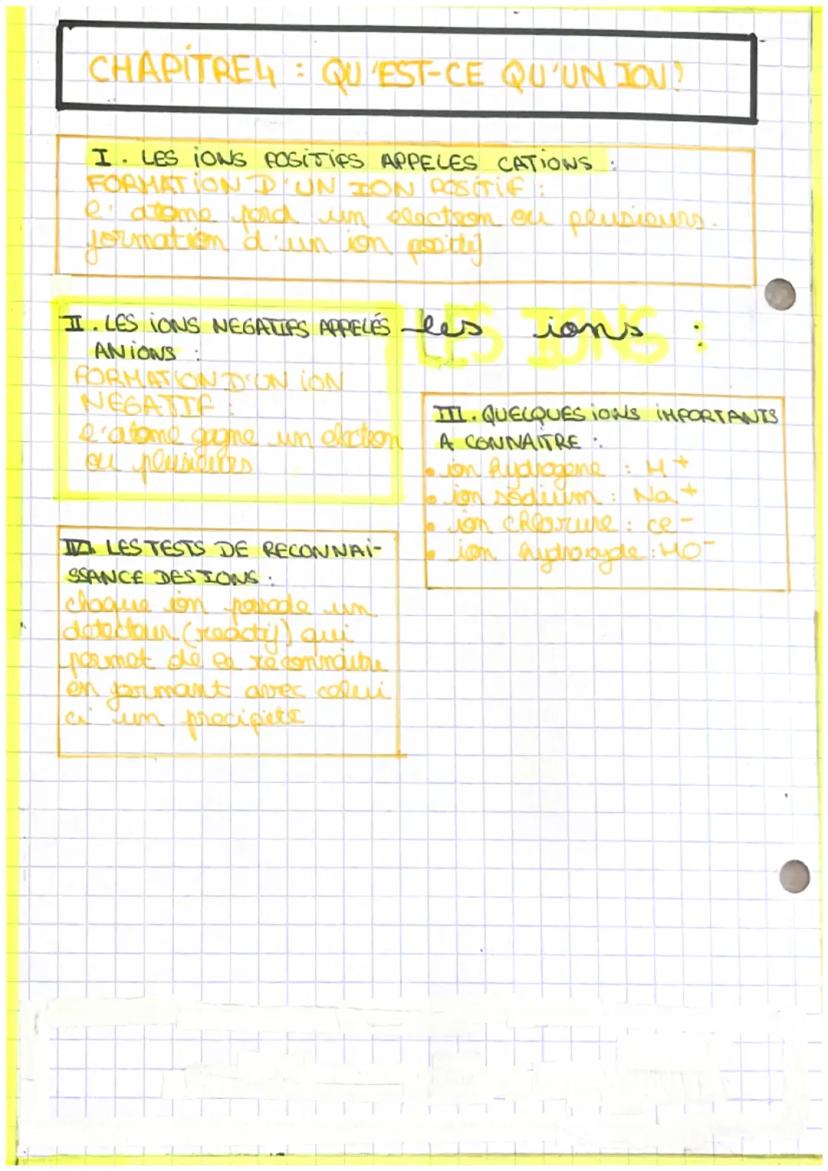 CHAPITRE 4 : QU'EST-CE QU'UN ION !
I. LES IONS POSITIFS APPELES CATIONS :
FORMATION D'UN ION POSITIF :
l'atome perd un electron ou plusieurs.
formation d'un ion positif
II. LES IONS NEGATIFS APPELÉS
ANIONS :
FORMATION D'UN ION
NEGATIF :
l'atome gagne un electron
ou plusieurs
LES IONS :
les ions :
III. QUELQUES IONS IMPORTANTS
A CONNAITRE :
• ion hydrogene : H+
• ion sodium : Na+
• ion chlorure : Cl-
• ion hydroxyde : HO-
IV. LES TESTS DE RECONNAI-
SSANCE DES IONS :
chaque ion possede un
detecteur (reactif) qui
permet de le reconnaitre
en formant avec celui
ci un precipité